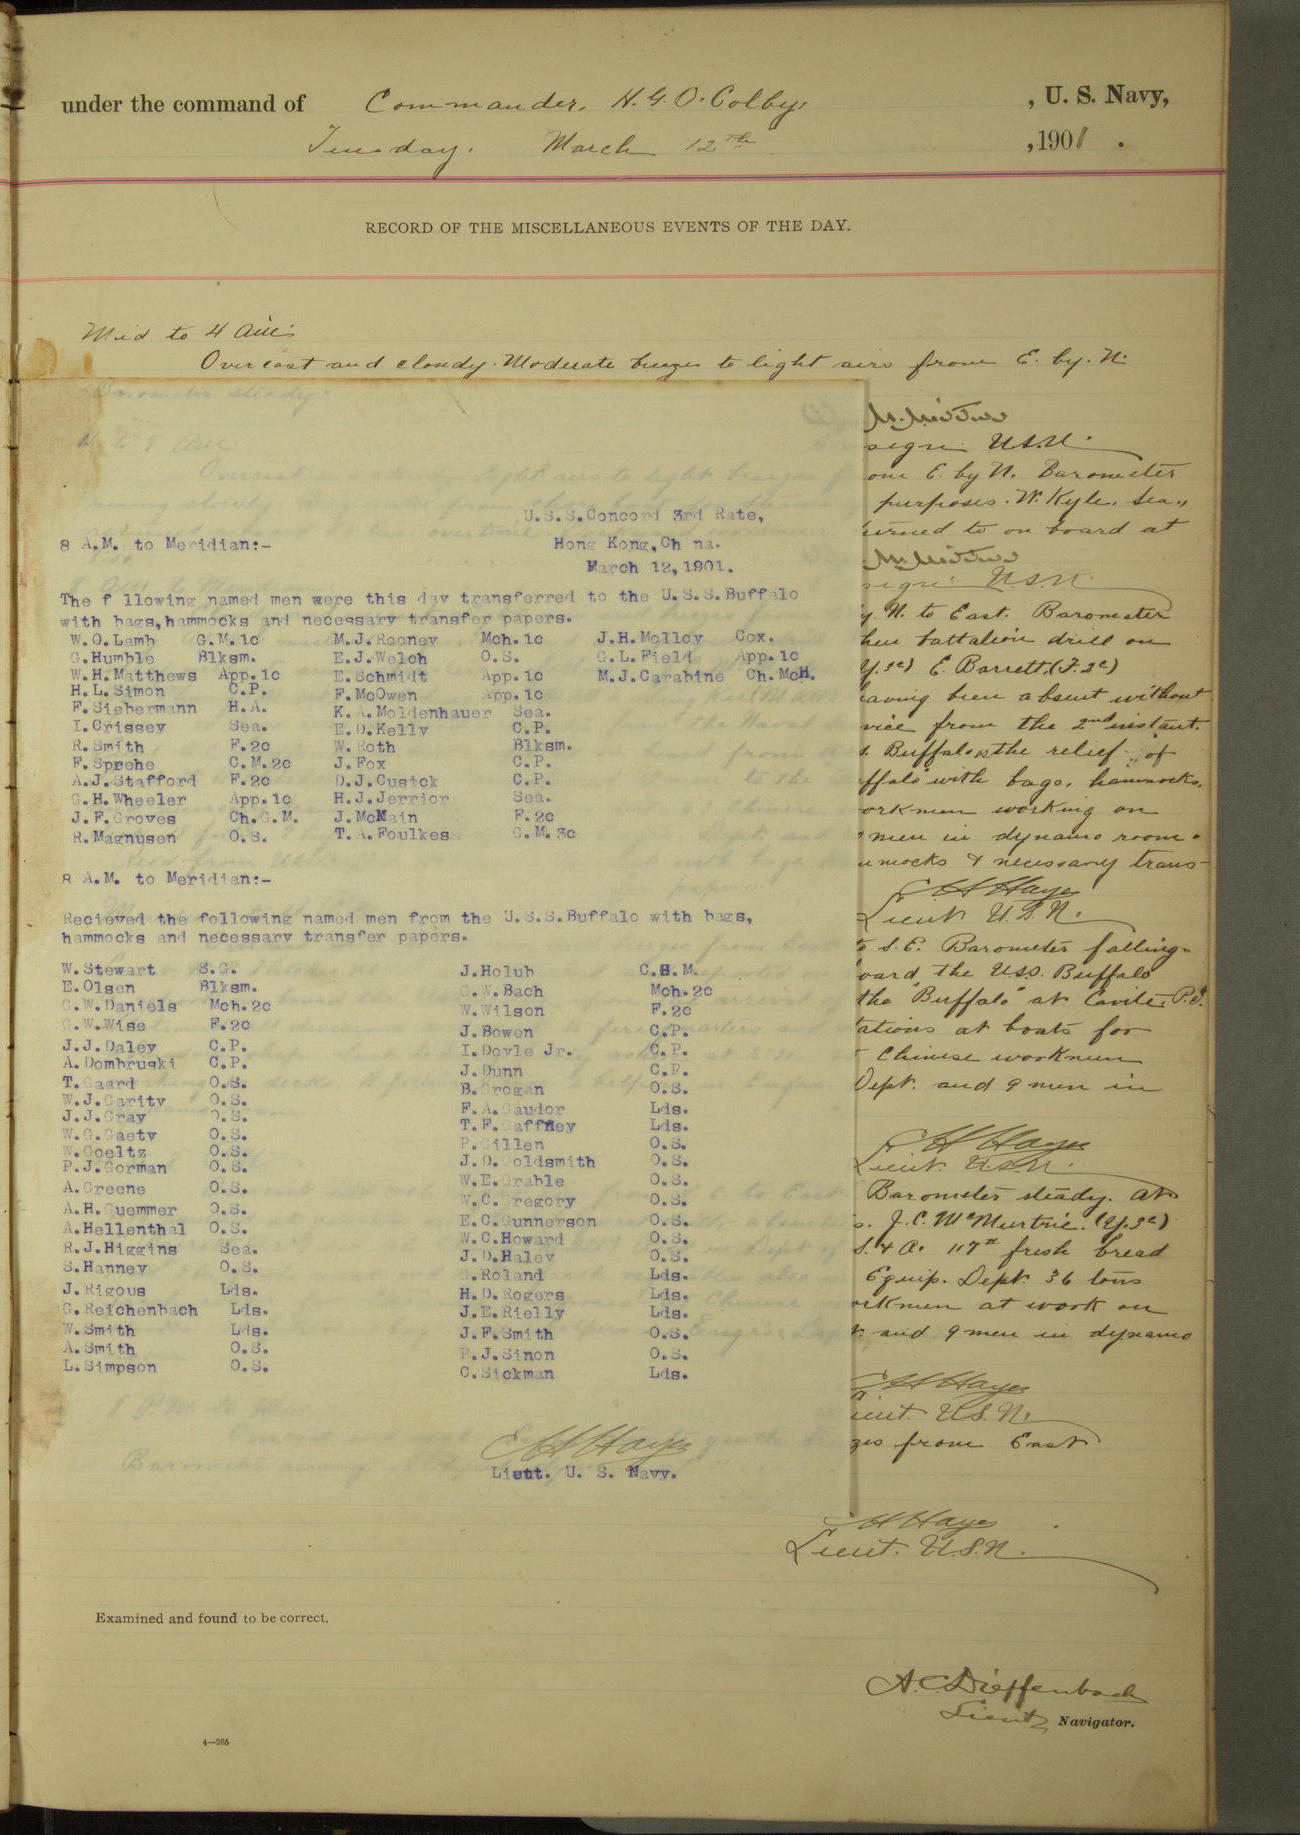 under the command of Commander, H.G.O. Colby, , U. S. Navy,
Tuesday. March 12th ,1901 .
RECORD OF THE MISCELLANEOUS EVENTS OF THE DAY.
Mid to 4 am:
Overcast and cloudy. Moderate breezes to light airs from E. by. N.
Barometer steady.
U.S.S.Concord 3rd Rate,
8 A.M. to Meridian:-
Hong Kong,Ch na.
March 12,1901.
The f llowing named men were this day transferred to the U.S.S.Buffalo
with bags,hammocks and necessary transfer papers.
W.O.Lamb G.M.1c M.J.Rooney Mch.1c J.H.Molloy Cox.
G.Humble Blksm. E.J.Welch O.S. G.L.Field App.1c
W.H.Matthews App.1c E.Schmidt App.1c M.J.Carabine Ch.McH.
H.L.Simon C.P. F.McOwen App.1c
F.Siebermann H.A. K.A.Moldenhauer Sea.
I.Crissey Sea. E.D.Kelly C.P.
R.Smith F.2c W.Roth Blksm.
F.Sprehe C.M.2c J.Fox C.P.
A.J.Stafford F.2c D.J.Cusick C.P.
G.H.Wheeler App.1c H.J.Jerrior Sea.
J.F.Groves Ch.G.M. J.McMain F.2c
R.Magnusen O.S. T.A.Foulkes G.M.3c
8 A.M. to Meridian:-
Recieved the following named men from the U.S.S.Buffalo with bags,
hammocks and necessary transfer papers.
W.Stewart S.G. J.Holub C.H.M.
E.Olsen Blksm. G.W.Bach Mch.2c
C.W.Daniels Mch.2c W.Wilson F.2c
G.W.Wise F.2c J.Bowen C.P.
J.J.Daley C.P. I.Doyle Jr. C.P.
A.Dombruski C.P. J.Dunn C.P.
T.Gaard O.S. B.Grogan O.S.
W.J.Garity O.S. F.A.Gaudor Lds.
J.J.Gray O.S. T.F.Gaffney Lds.
W.G.Gaety O.S. P.Gillen O.S.
W.Goeltz O.S. J.D.Goldsmith O.S.
P.J.Gorman O.S. W.E.Grable O.S.
A.Greene O.S. W.C.Gregory O.S.
A.H.Guemmer O.S. E.C.Gunnerson O.S.
A.Hellenthal O.S. W.C.Howard O.S.
R.J.Higgins Sea. J.D.Haley O.S.
S.Hanney O.S. G.Roland Lds.
J.Rigous Lds. H.D.Rogers Lds.
G.Reichenbach Lds. J.E.Rielly Lds.
W.Smith Lds. J.F.Smith O.S.
A.Smith O.S. P.J.Sinon O.S.
L.Simpson O.S. C.Sickman Lds.
Lieut. U. S. Navy.
sign U.S.N.
om E. by N. Barometer
purposes. W. Kyle, Sea.,
urned to on board at
sign U.S.N.
y. N. to East. Barometer
hen battalion drill on
Y.3c) E. Barrett,(F.2c)
having been absent without
vice from the 2nd instant.
s. Buffalo as the relief of
ffalo with bags, hammocks,
orkmen working on
men in dynamo room.
mmocks & necessary trans-
E H Hayes
Lieut U.S.N.
to S.E. Barometer falling.
oard the U.S.S. Buffalo
the "Buffalo" at Cavite, P.I.
tations at boats for
Chinese workmen
Dept. and 9 men in
E H Hayes
Lieut. U.S.N.
Barometer steady. At
s. J.C. McMurtrie. (Y.3c)
S. & A. 117# fresh bread
Equip. Dept. 36 tons
orkmen at work on
t. and 9 men in dynamo
E H Hayes
ieut. U.S.N.
zes from East
H Hayes
Lieut. U.S.N.
Examined and found to be correct.
A.C. Dieffenbach
Lieut, Navigator.
4—265